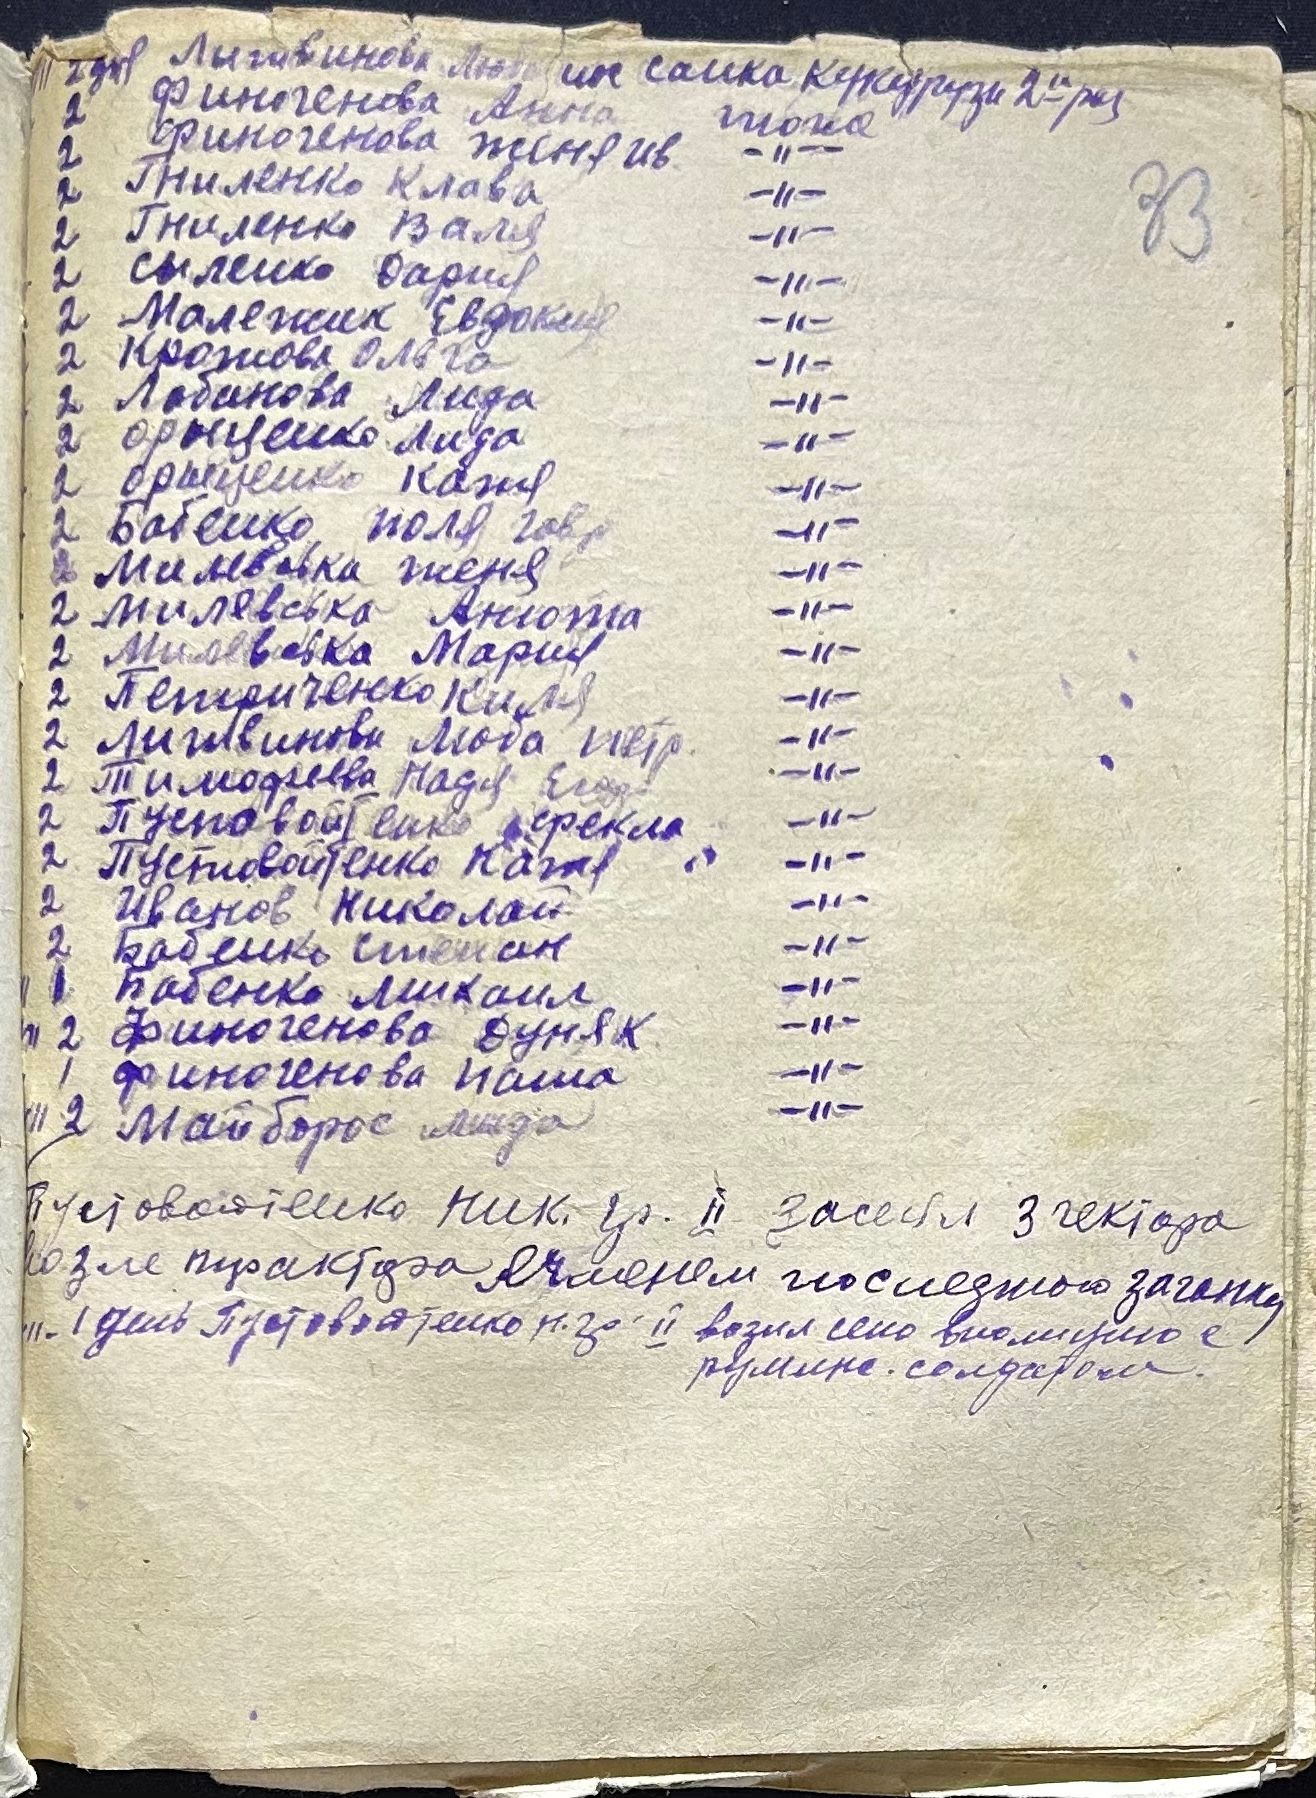 2 дня Лигвинова Люба ин сапка кукурузи 2й раз
2 Финогенова Анна тоже
2 Финогенова Женя ив. -"-
2 Гниленко Клава -"-
2 Гниленко Валя -"-
33
2 Сыленко Дария -"-
2 Малежик Евдокия -"-
2 Кротова Ольга -"-
2 Лобанова Лида -"-
2 Орищенко Лида -"-
2 Орищенко Катя -"-
2 Бабенко Поля говр -"-
2 Милевска Женя -"-
2 Милевська Анюта -"-
2 Милевська Мария -"-
2 Петриченко Киля -"-
2 Лигвинова Люба петр. -"-
2 Тимофеева Надя -"-
2 Пустовойтенко Фекла -"-
2 Пустовойтенко Катя -"-
2 Иванов Николай -"-
2 Бабенко Степан -"-
1 Бабенко Михаил -"-
2 Финогенова Дуня К -"-
1 Финогенова Паша -"-
2 Майборос Лида -"-
Пустовойтенко Ник. гр. II засеял 3 гектара
возле трактора Ячменем последнюю загонку
1 день Пустовойтенко н. гр. II возил сено вполицию с
румынс. солдатом.